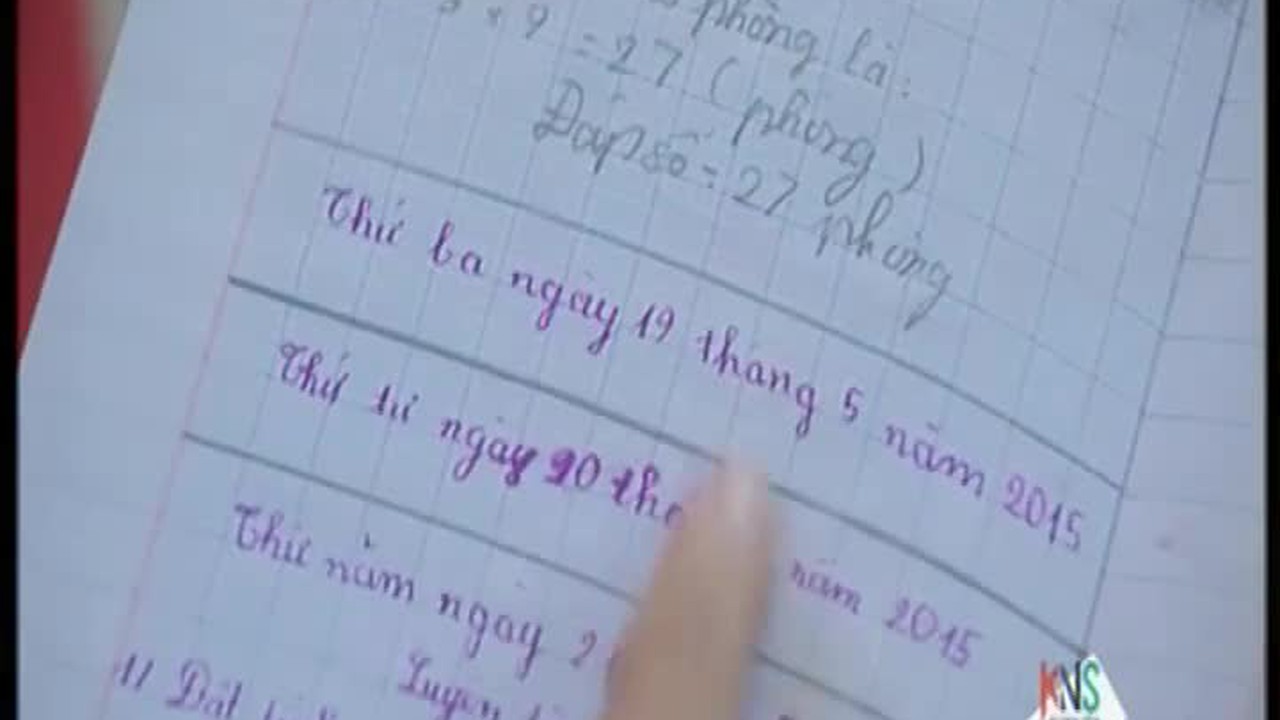 phòng là:
3 × 9 = 27 (phòng)
Đáp số: 27 phòng
Thứ ba ngày 19 tháng 5 năm 2015
Thứ tư ngày 20 năm 2015
Thứ năm ngày 2
Luyện
1/ Đặt
KNS